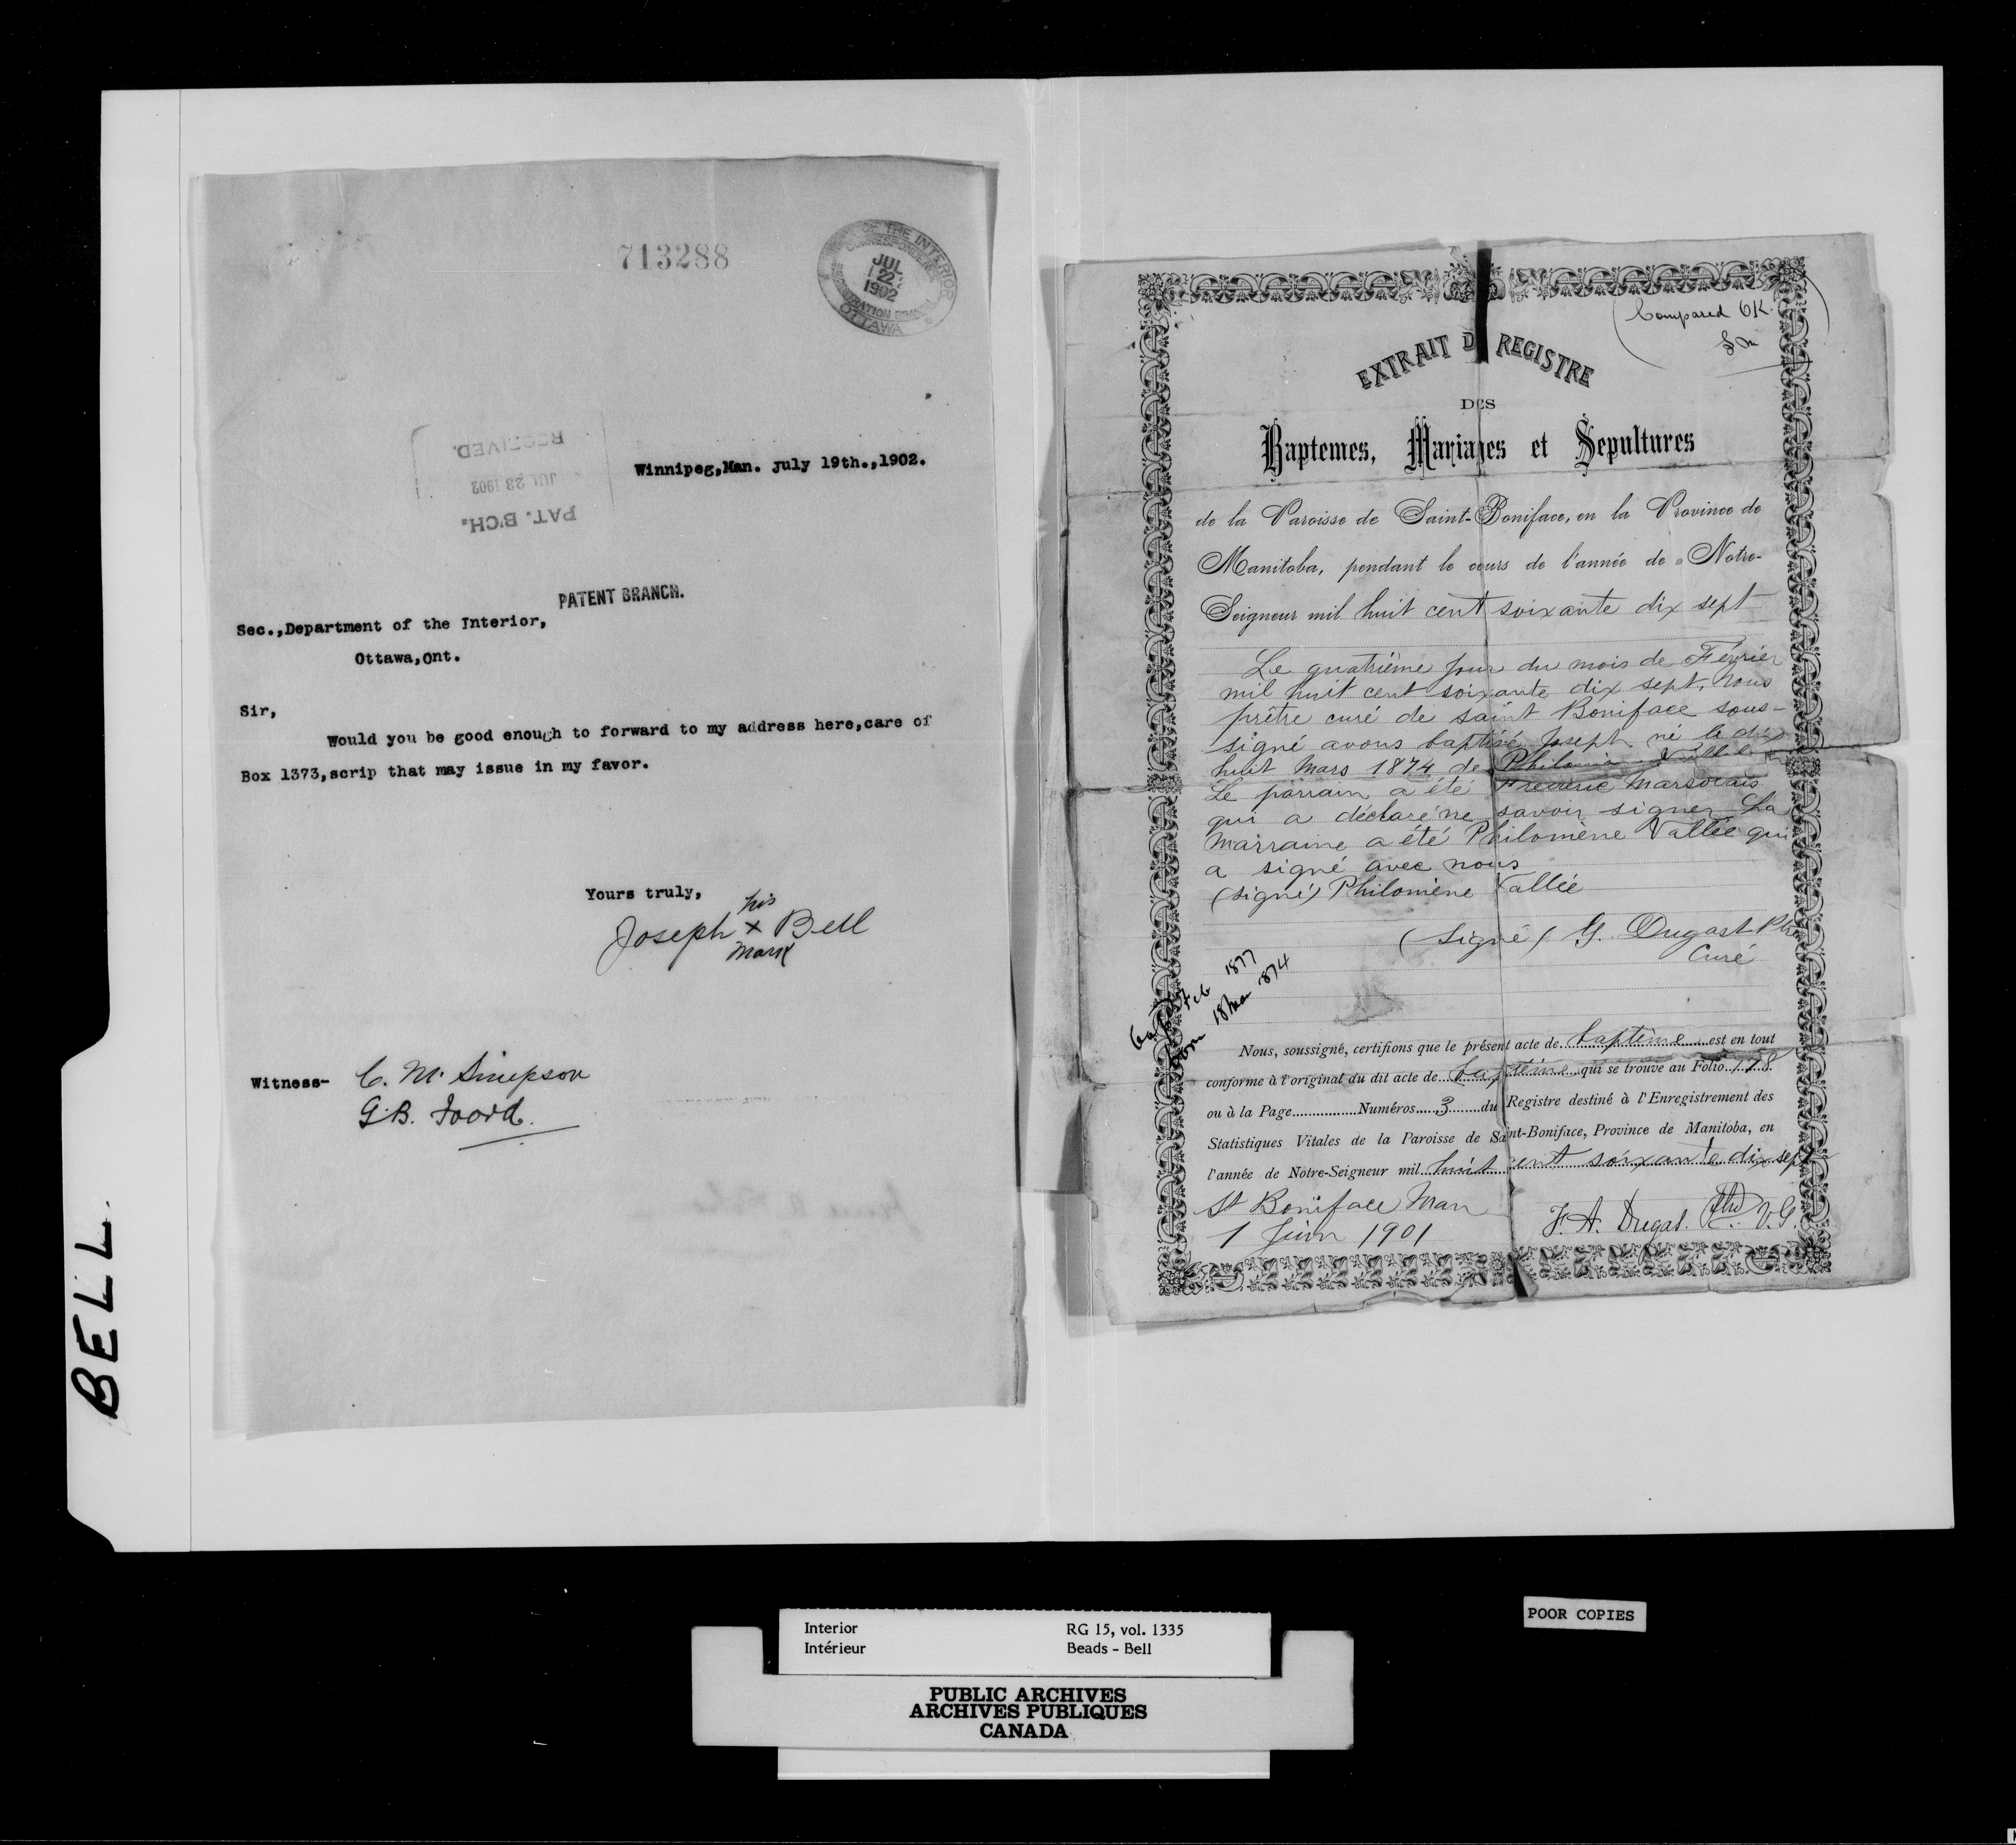 713288
OF THE INTERIOR
CORRESPONDENCE
JUL
22
1902
REGISTRATION BRANCH
OTTAWA
RECEIVED.
JUL 23 1902
PAT. B'CH.
Winnipeg,Man. July 19th.,1902.
PATENT BRANCH.
Sec.,Department of the Interior,
Ottawa,Ont.
Sir,
Would you be good enough to forward to my address here,care of
Box 1373,scrip that may issue in my favor.
Yours truly,
his
Joseph x Bell
mark
Witness- C. M. Simpson
G.B. Foord.
BELL.
Compared OK.
EXTRAIT D REGISTRE
DES
Baptemes, Mariages et Sepultures
de la Paroisse de Saint-Boniface, en la Province de
Manitoba, pendant le cours de l'année de Notre-
Seigneur mil huit cent soixante dix sept
Le quatrième jour du mois de Février
mil huit cent soixante dix sept, Nous
prêtre curé de saint Boniface sous-
signé avons baptisé Joseph né le dix
huit Mars 1874 de
Le parrain a été Frederic Marsolais
qui a déclaré ne savoir signer La
Marraine a été Philomène Vallée qui
a signé avec nous
(signé) Philomène Vallée
(signé) G. Dugast Ptre
Curé
Feb 1877
18 Mar 1874
Nous, soussigné, certifions que le présent acte de baptême est en tout
conforme à l'original du dit acte de baptême qui se trouve au Folio 178
ou à la Page Numéros 3 du Registre destiné à l'Enregistrement des
Statistiques Vitales de la Paroisse de Saint-Boniface, Province de Manitoba, en
l'année de Notre-Seigneur mil huit cent soixante dix sept
St Boniface Man
1 Juin 1901
F. A. Dugas. Ptre V.G.
POOR COPIES
Interior RG 15, vol. 1335
Intérieur Beads - Bell
PUBLIC ARCHIVES
ARCHIVES PUBLIQUES
CANADA